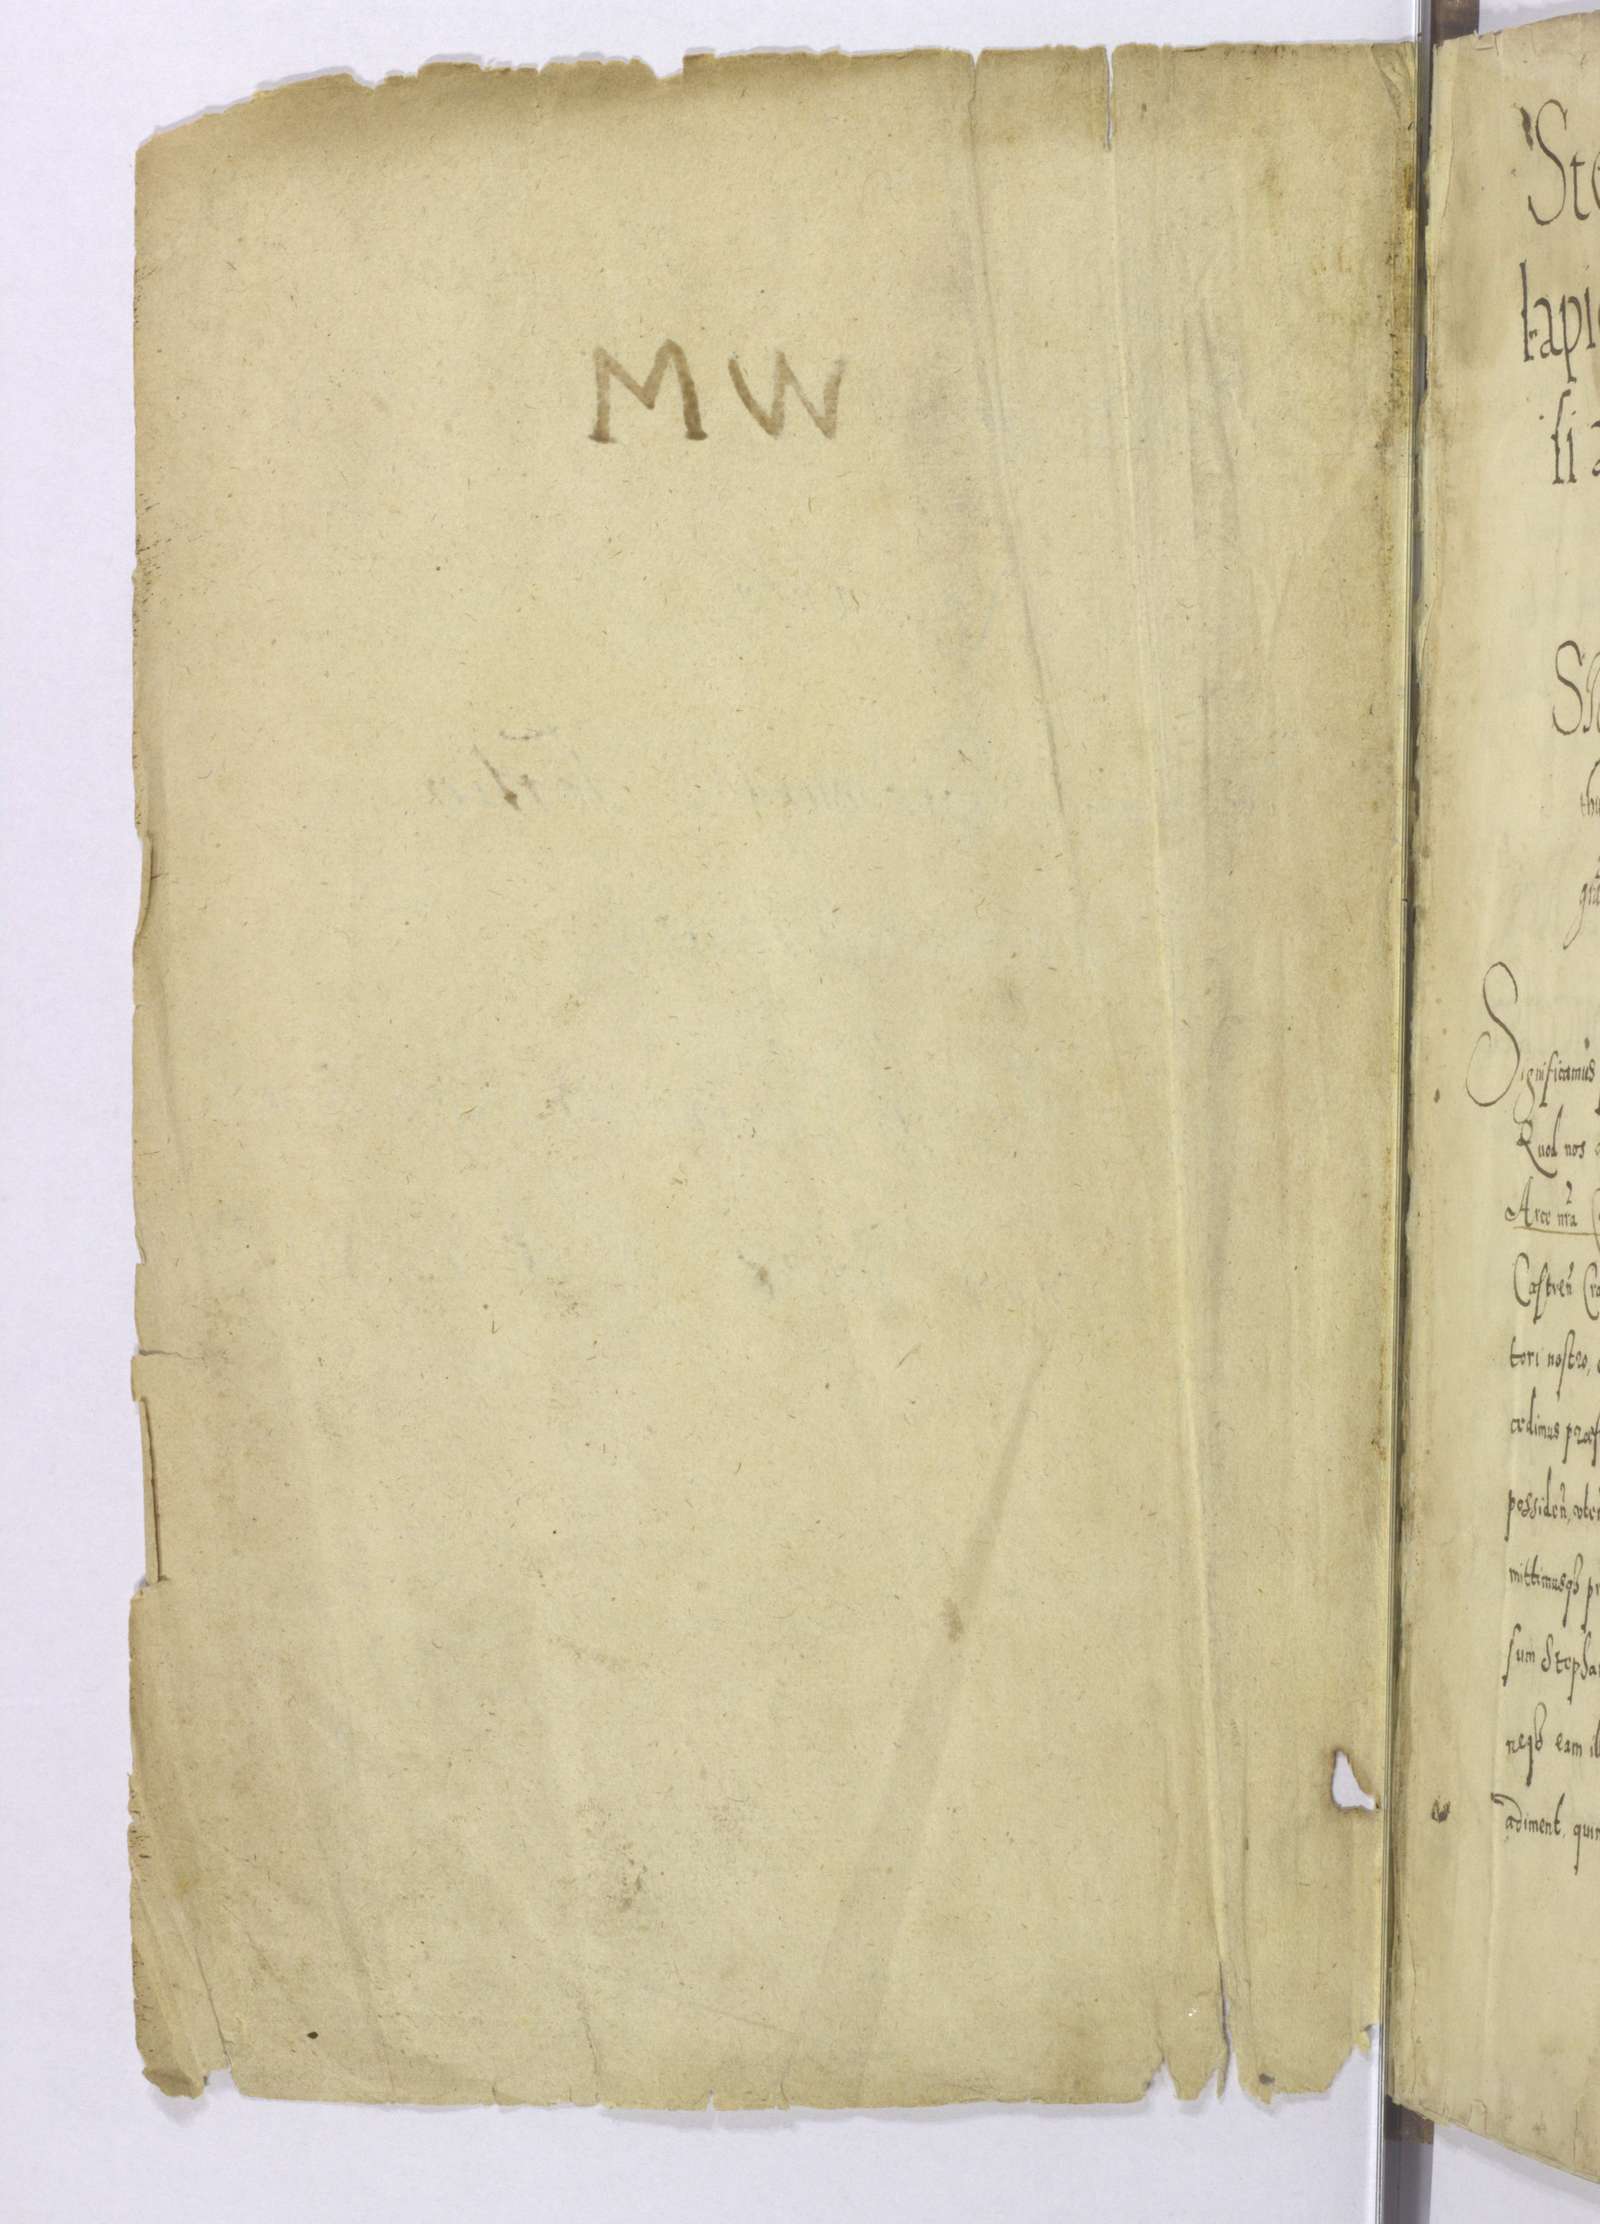 MW
Ste
lapi
si a
thu
Significamus
Quod nos
Arce nra
Castren Cra
tori nostro,
cedimus praes
possiden, uten
mittimusqz pr
sum Stepha
neqz eam il
adiment, quin